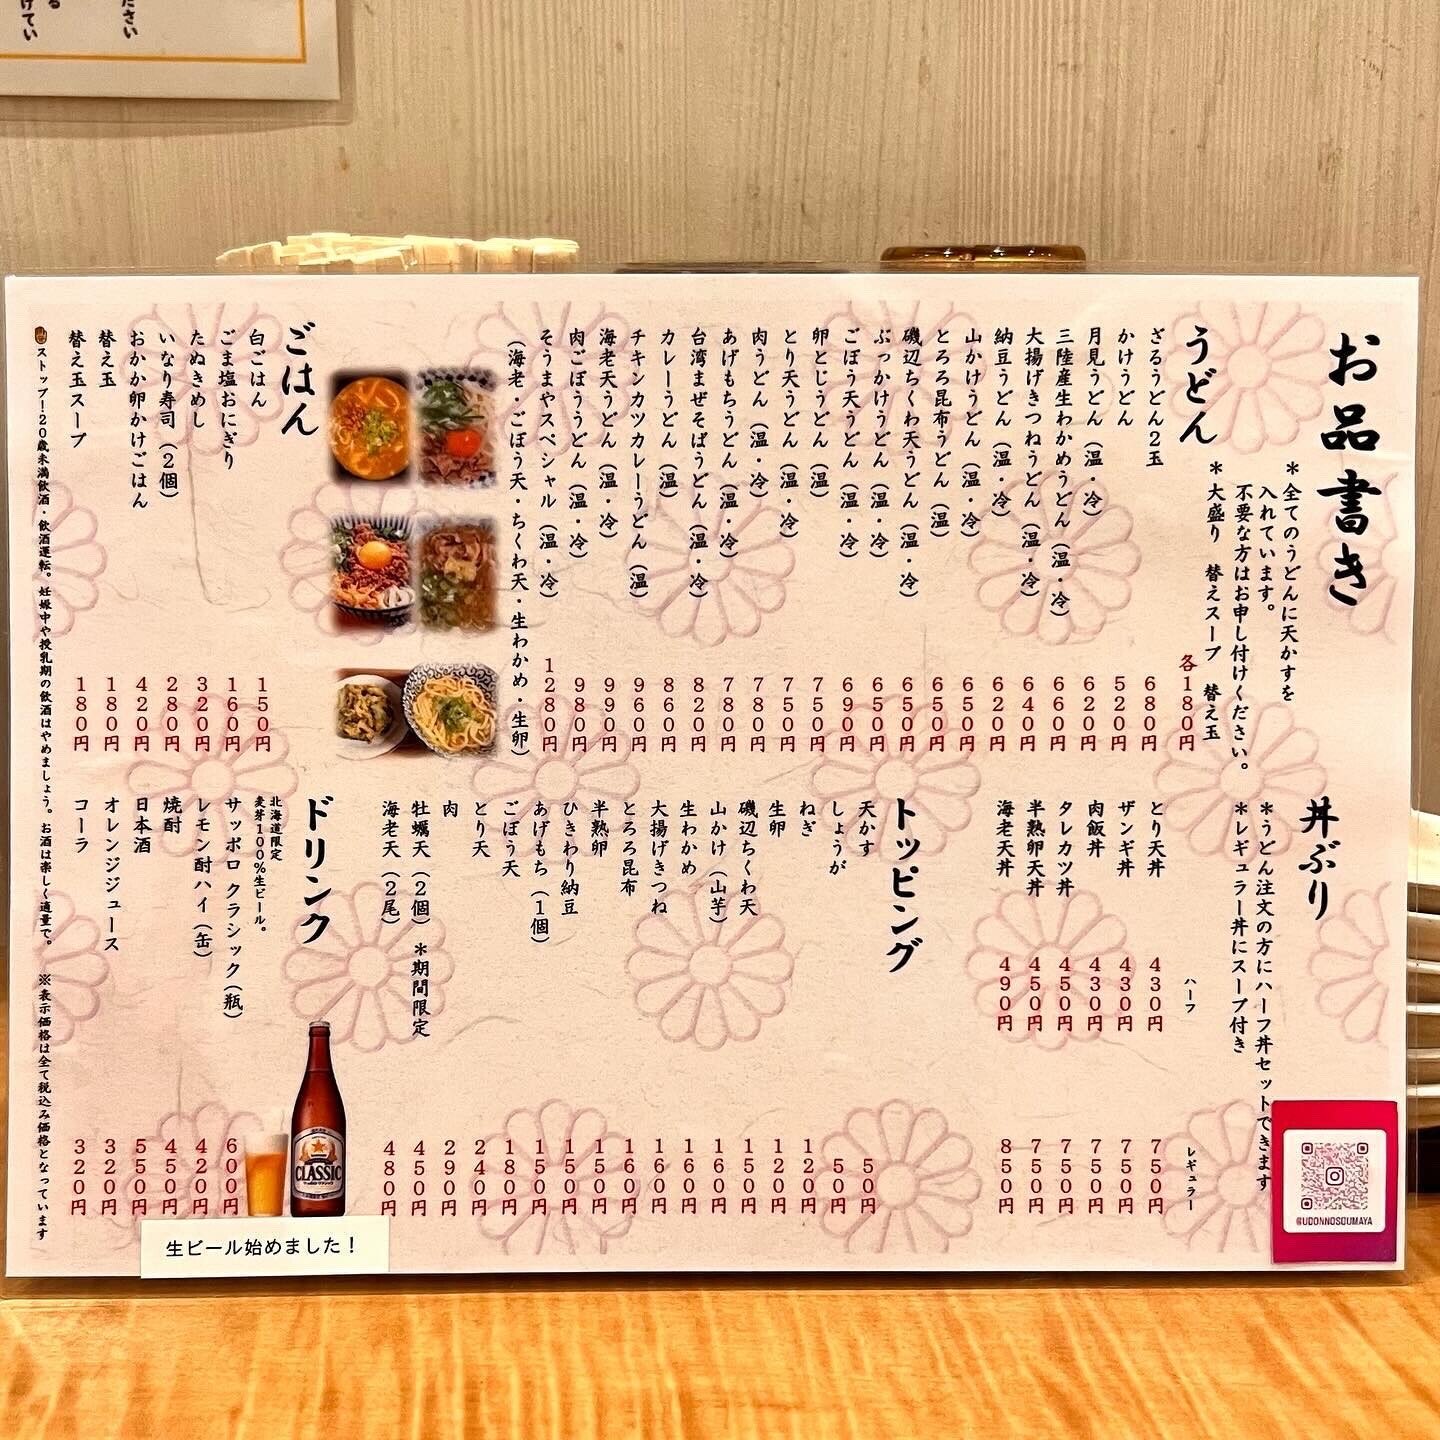 ださい
けてい
お品書き
うどん
*全てのうどんに天かすを
入れています。
不要な方はお申し付けください。
*大盛り 替えスープ 替え玉
各180円
ざるうどん2玉 680円
かけうどん 520円
月見うどん(温・冷) 620円
三陸産生わかめうどん(温・冷) 660円
大揚げきつねうどん(温・冷) 640円
納豆うどん(温・冷) 620円
山かけうどん(温・冷) 650円
とろろ昆布うどん(温) 650円
磯辺ちくわ天うどん(温・冷) 650円
ぶっかけうどん(温・冷) 650円
ごぼう天うどん(温・冷) 690円
卵とじうどん(温) 750円
とり天うどん(温・冷) 750円
肉うどん(温・冷) 780円
あげもちうどん(温・冷) 780円
台湾まぜそばうどん(温・冷) 820円
カレーうどん(温) 860円
チキンカツカレーうどん(温) 960円
海老天うどん(温・冷) 990円
肉ごぼううどん(温・冷) 980円
そうまやスペシャル(温・冷) 1280円
(海老・ごぼう天・ちくわ天・生わかめ・生卵)
ごはん
白ごはん 150円
ごま塩おにぎり 160円
たぬきめし 320円
いなり寿司(2個) 280円
おかか卵かけごはん 420円
替え玉 180円
替え玉スープ 180円
丼ぶり
*うどん注文の方にハーフ丼セットできます
*レギュラー丼にスープ付き
ハーフ レギュラー
とり天丼 430円 750円
ザンギ丼 430円 750円
肉飯丼 430円 750円
タレカツ丼 450円 750円
半熟卵天丼 450円 750円
海老天丼 490円 850円
トッピング
天かす 50円
しょうが 50円
ねぎ 120円
生卵 120円
磯辺ちくわ天 150円
山かけ(山芋) 160円
生わかめ 160円
大揚げきつね 160円
とろろ昆布 160円
半熟卵 150円
ひきわり納豆 150円
あげもち(1個) 150円
ごぼう天 180円
とり天 240円
肉 290円
牡蠣天(2個)*期間限定 450円
海老天(2尾) 480円
ドリンク
北海道限定
麦芽100%生ビール。
サッポロ クラシック(瓶) 600円
レモン酎ハイ(缶) 420円
焼酎 450円
日本酒 550円
オレンジジュース 320円
コーラ 320円
ストップ!20歳未満飲酒・飲酒運転。妊娠中や授乳期の飲酒はやめましょう。お酒は楽しく適量で。 ※表示価格は全て税込み価格となっています
CLASSIC
生ビール始めました!
@UDONNOSOUMAYA